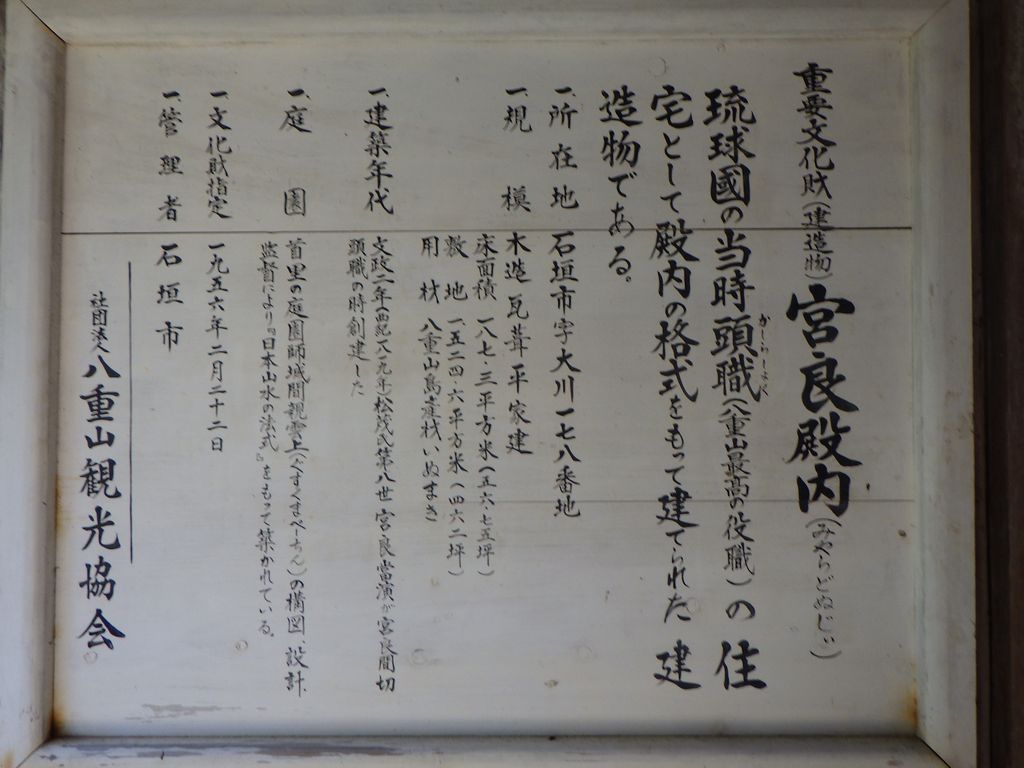 重要文化財(建造物)宮良殿内(みやらどぬじぃ)
琉球國の当時頭職(八重山最高の役職)の住
かしらしょく
宅として殿内の格式をもって建てられた建
造物である。
一、所在地 石垣市字大川一七八番地
一、規模 木造瓦葺平家建
床面積 一八七・三平方米(五六・七五坪)
敷地 一、五二四・六平方米(四六二坪)
用材 八重山島産材いぬまき
一、建築年代 文政二年(西紀一八一九年)松茂氏第八世宮良當演が宮良間切
頭職の時創建した
一、庭園 首里の庭園師城間親雲上(ぐすくまぺーちん)の構図、設計、
監督により『日本山水の法式』をもって築かれている。
一、文化財指定 一九五六年二月二十二日
一、管理者 石垣市
社団法人八重山観光協会